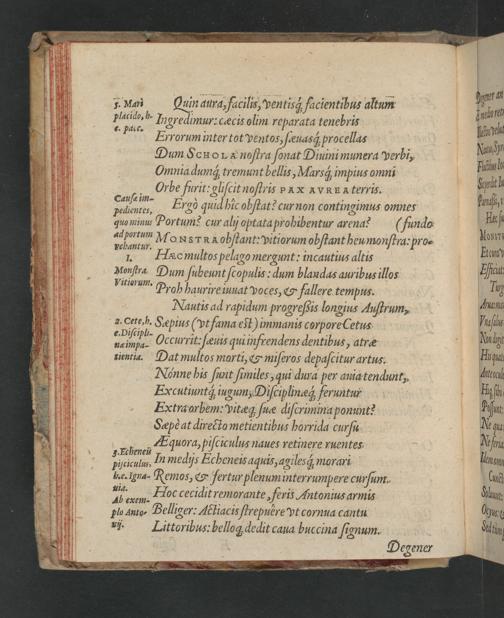 5. Mari placido, h. e. pace.
Quin aura, facilis, ventisq́, facientibus altum
Ingredimur: cæcis olim reparata tenebris
Errorum inter tot ventos, sæuasq́ procellas
Dum SCHOLA nostra sonat Diuini munera verbi,
Omnia dumq́ tremunt bellis, Marsq́ impius omni
Orbe furit: gliscit nostris PAX AVREA terris.
Causæ impedientes, quo minus ad portum vehantur.
Ergò quid hîc obstat? cur non contingimus omnes
Portum? cur alij optata prohibentur arena? (fundo
MONSTRA obstant: vitiorum obstant heu monstra: pro-
1. Monstra Vitiorum.
HÆC multos pelago mergunt: incautius altis
Dum subeunt scopulis: dum blandas auribus illos
Proh haurire iuuat voces, & fallere tempus.
Nautis ad rapidum progressis longius Austrum,
2. Cete, h. e. Disciplinæ impatientia.
Sæpius (vt fama est) immanis corpore Cetus
Occurrit: sæuis qui infrendens dentibus, atræ
Dat multos morti, & miseros depascitur artus.
Nónne his sunt similes, qui dura per auia tendunt,
Excutiuntq́ iugum, Disciplinæq́ feruntur
Extra orbem: vitæq́ suæ discrimina ponunt?
Sæpè at directo metientibus horrida cursu
Æquora, pisciculus naues retinere ruentes
3. Echeneis pisciculus. h. e. Ignauia.
In medijs Echeneis aquis, agilesq́ morari
Remos, & fertur plenum interrumpere cursum.
Ab exemplo Antonij.
Hoc cecidit remorante, feris Antonius armis
Belliger: Actiacis strepuêre vt cornua cantu
Littoribus: belloq́ dedit caua buccina signum.
Degener